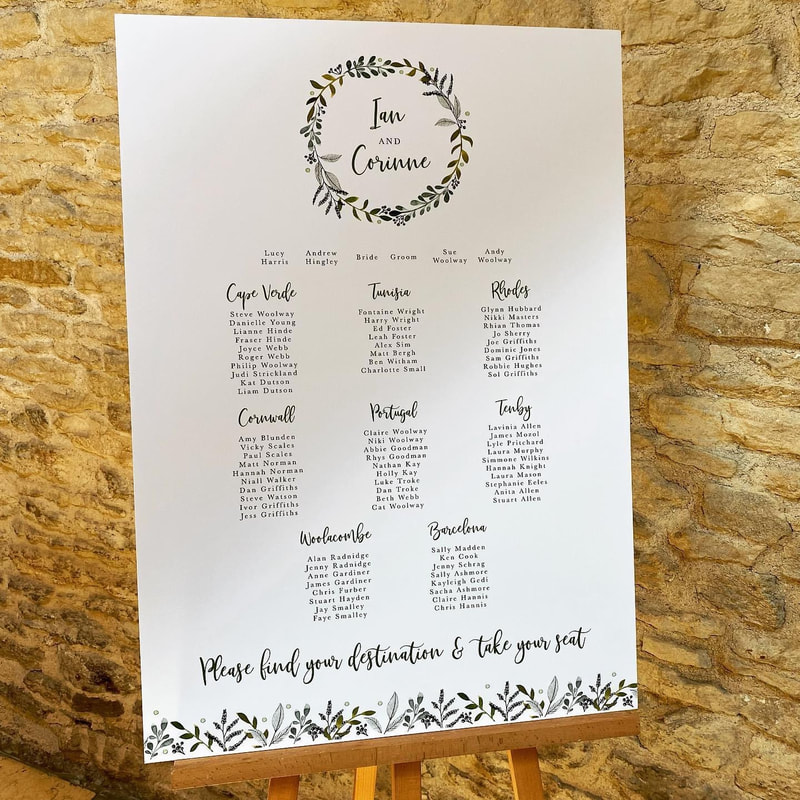 Ian
AND
Corinne
Lucy Harris
Andrew Hingley
Bride
Groom
Sue Woolway
Andy Woolway
Cape Verde
Steve Woolway
Danielle Young
Lianne Hinde
Fraser Hinde
Joyce Webb
Roger Webb
Philip Woolway
Judi Strickland
Kat Dutson
Liam Dutson
Tunisia
Fontaine Wright
Harry Wright
Ed Foster
Leah Foster
Alex Sim
Matt Bergh
Ben Witham
Charlotte Small
Rhodes
Glynn Hubbard
Nikki Masters
Rhian Thomas
Jo Sherry
Joe Griffiths
Dominic Jones
Sam Griffiths
Robbie Hughes
Sol Griffiths
Cornwall
Amy Blunden
Vicky Scales
Paul Scales
Matt Norman
Hannah Norman
Niall Walker
Dan Griffiths
Steve Watson
Ivor Griffiths
Jess Griffiths
Portugal
Claire Woolway
Niki Woolway
Abbie Goodman
Rhys Goodman
Nathan Kay
Holly Kay
Luke Troke
Dan Troke
Beth Webb
Cat Woolway
Tenby
Lavinia Allen
James Mozol
Lyle Pritchard
Laura Murphy
Simmone Wilkins
Hannah Knight
Laura Mason
Stephanie Eeles
Anita Allen
Stuart Allen
Woolacombe
Alan Radnidge
Jenny Radnidge
Anne Gardiner
James Gardiner
Chris Furber
Stuart Hayden
Jay Smalley
Faye Smalley
Barcelona
Sally Madden
Ken Cook
Jenny Schrag
Sally Ashmore
Kayleigh Gedi
Sacha Ashmore
Claire Hannis
Chris Hannis
Please find your destination & take your seat